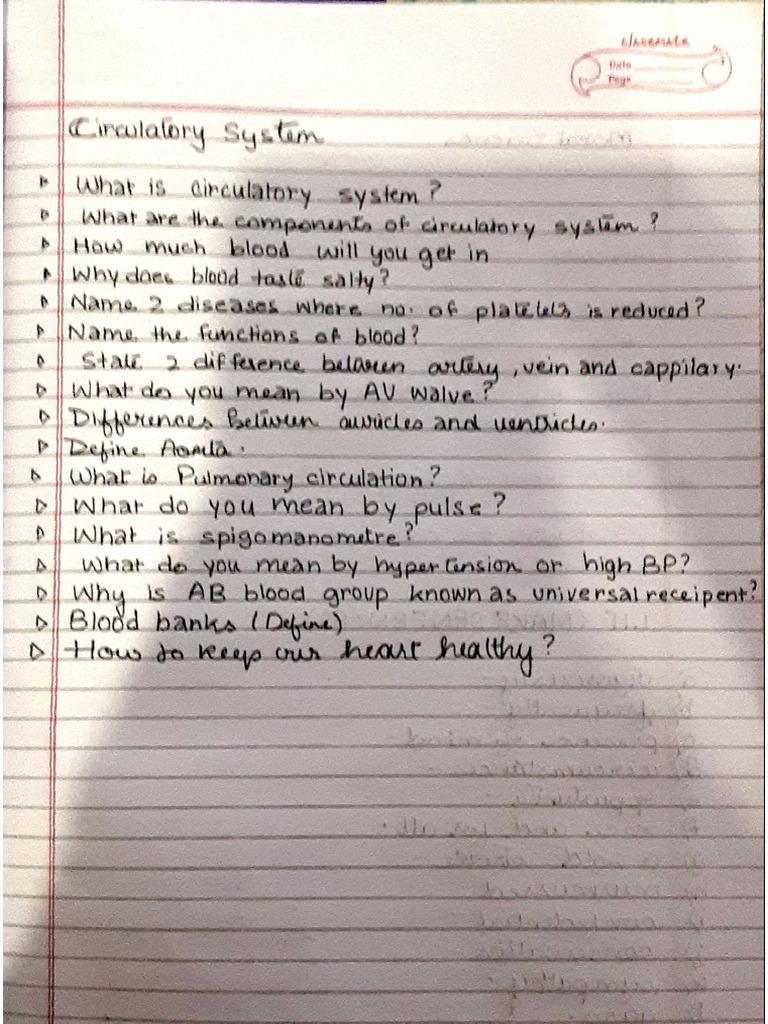 classmate
Date
Page
Circulatory System
What is circulatory system?
What are the components of circulatory system?
How much blood will you get in
Why does blood taste salty?
Name 2 diseases where no. of platelets is reduced?
Name the functions of blood?
State 2 difference between artery, vein and cappilary.
What do you mean by AV Walve?
Differences Between auricles and ventricles.
Define Aorta.
What is Pulmonary circulation?
What do you mean by pulse?
What is spigomanometre?
What do you mean by hypertension or high BP?
Why is AB blood group known as universal receipent?
Blood banks (Define)
How to keep our heart healthy?